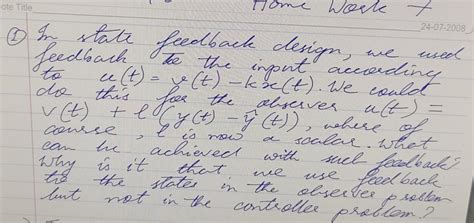 ote Title
Home Work 7
24-07-2008
① In state feedback design, we used
feedback to the input according
to u(t) = v(t) - kx(t). We could
do this for the observer u(t) =
v(t) + l(y(t) - ŷ(t)), where of
course, l is now a scalar. What
can be achieved with such feedback?
Why is it that we use feedback
to the states in the observer problem
but not in the controller problem?